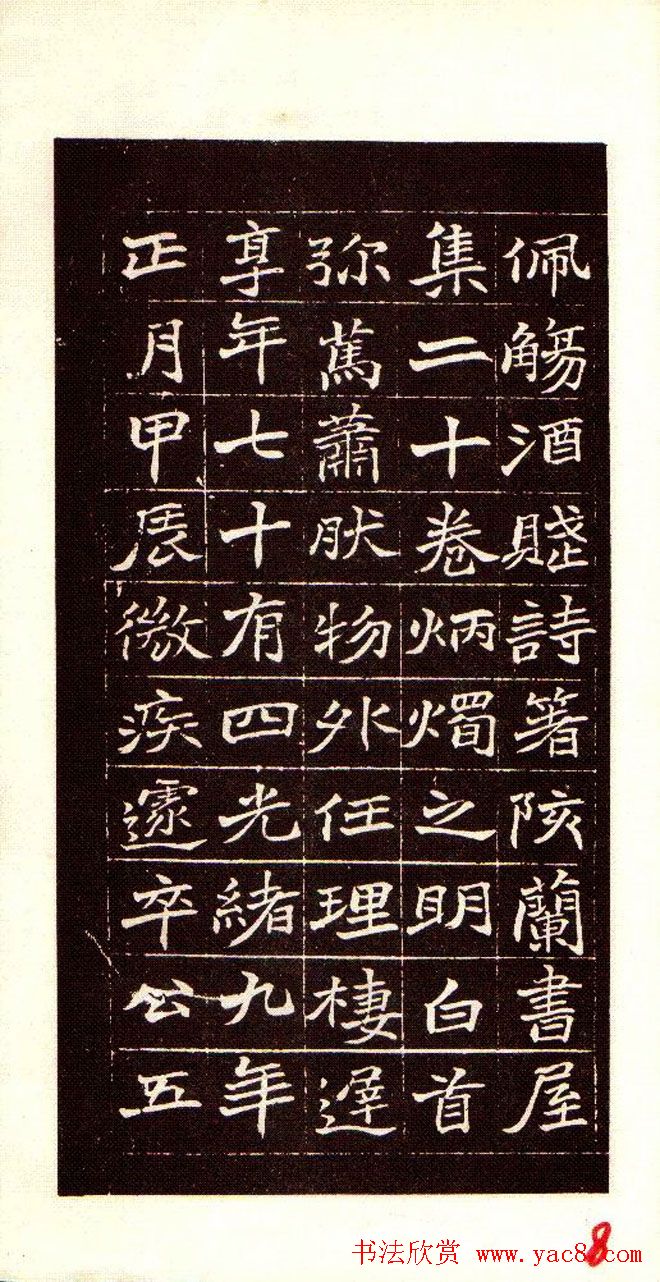 佩觴酒賤詩箸陔蘭書屋
集二十卷炳燭之明白首
弥蔿蕭肰物外任理棲遟
享年七十有四光緒九年
正月甲辰微疾遽卒公五
8
书法欣赏 www.yac8.com